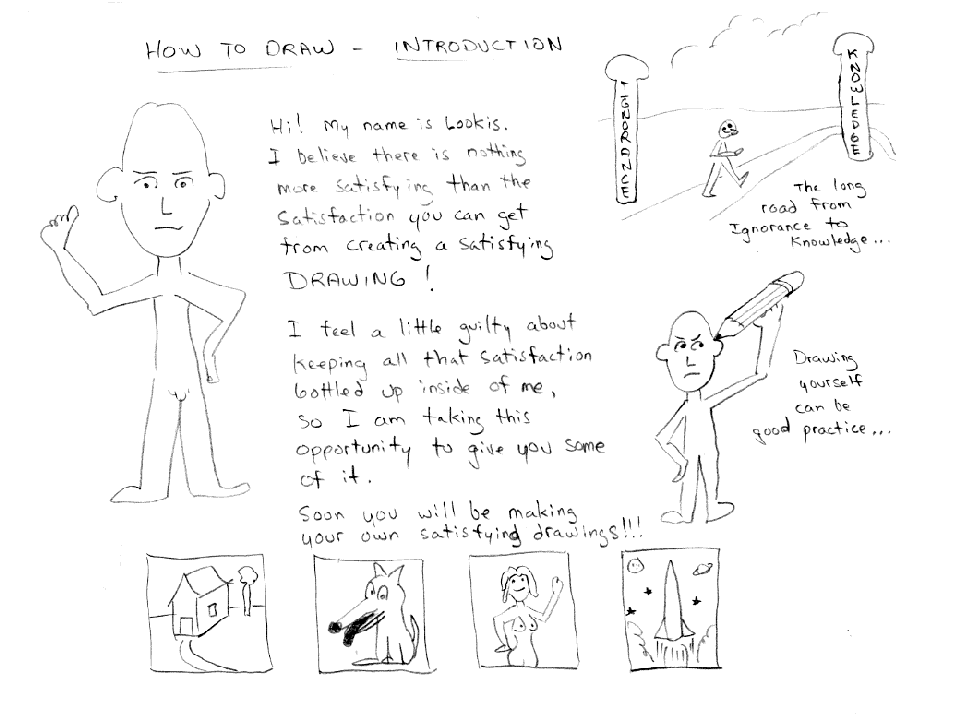 HOW TO DRAW - INTRODUCTION
Hi! My name is Lookis.
I believe there is nothing
more satisfying than the
satisfaction you can get
from creating a satisfying
DRAWING!
I feel a little guilty about
keeping all that satisfaction
bottled up inside of me,
so I am taking this
opportunity to give you some
of it.
Soon you will be making
your own satisfying drawings!!!
IGNORANCE
KNOWLEDGE
The long
road from
Ignorance to
Knowledge...
Drawing
yourself
can be
good practice...